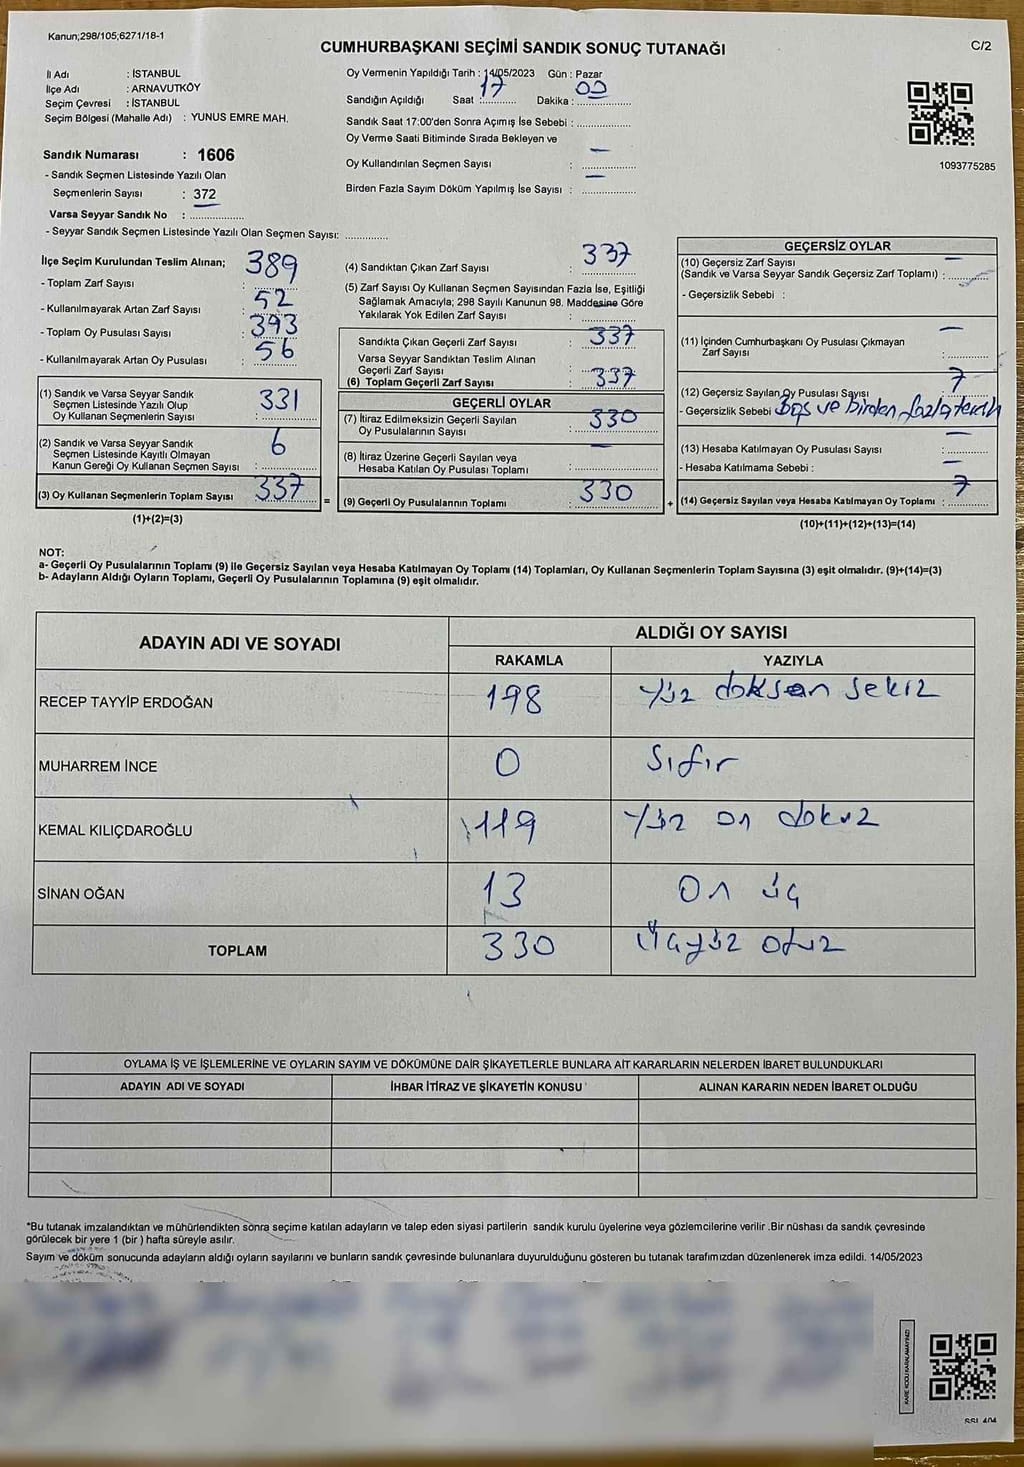 Kanun;298/105;6271/18-1
CUMHURBAŞKANI SEÇİMİ SANDIK SONUÇ TUTANAĞI
C/2
İl Adı : İSTANBUL
İlçe Adı : ARNAVUTKÖY
Seçim Çevresi : İSTANBUL
Seçim Bölgesi (Mahalle Adı) : YUNUS EMRE MAH.
Sandık Numarası : 1606
- Sandık Seçmen Listesinde Yazılı Olan
Seçmenlerin Sayısı : 372
Varsa Seyyar Sandık No : ..................
- Seyyar Sandık Seçmen Listesinde Yazılı Olan Seçmen Sayısı: ..............
Oy Vermenin Yapıldığı Tarih : 14/05/2023 Gün : Pazar
Sandığın Açıldığı Saat : 17 Dakika : 00
Sandık Saat 17:00'den Sonra Açımış İse Sebebi : ..................
Oy Verme Saati Bitiminde Sırada Bekleyen ve
Oy Kullandırılan Seçmen Sayısı : —
Birden Fazla Sayım Döküm Yapılmış İse Sayısı : —
1093775285
İlçe Seçim Kurulundan Teslim Alınan;
- Toplam Zarf Sayısı : 389
- Kullanılmayarak Artan Zarf Sayısı : 52
- Toplam Oy Pusulası Sayısı : 393
- Kullanılmayarak Artan Oy Pusulası : 56
(1) Sandık ve Varsa Seyyar Sandık
Seçmen Listesinde Yazılı Olup
Oy Kullanan Seçmenlerin Sayısı : 331
(2) Sandık ve Varsa Seyyar Sandık
Seçmen Listesinde Kayıtlı Olmayan
Kanun Gereği Oy Kullanan Seçmen Sayısı : 6
(3) Oy Kullanan Seçmenlerin Toplam Sayısı : 337 =
(1)+(2)=(3)
(4) Sandıktan Çıkan Zarf Sayısı : 337
(5) Zarf Sayısı Oy Kullanan Seçmen Sayısından Fazla İse, Eşitliği
Sağlamak Amacıyla; 298 Sayılı Kanunun 98. Maddesine Göre
Yakılarak Yok Edilen Zarf Sayısı : —
Sandıkta Çıkan Geçerli Zarf Sayısı : 337
Varsa Seyyar Sandıktan Teslim Alınan
Geçerli Zarf Sayısı : —
(6) Toplam Geçerli Zarf Sayısı : 337
GEÇERLİ OYLAR
(7) İtiraz Edilmeksizin Geçerli Sayılan
Oy Pusulalarının Sayısı : 330
(8) İtiraz Üzerine Geçerli Sayılan veya
Hesaba Katılan Oy Pusulası Toplamı : —
(9) Geçerli Oy Pusulalarının Toplamı : 330 +
GEÇERSİZ OYLAR
(10) Geçersiz Zarf Sayısı
(Sandık ve Varsa Seyyar Sandık Geçersiz Zarf Toplamı) : —
- Geçersizlik Sebebi :
(11) İçinden Cumhurbaşkanı Oy Pusulası Çıkmayan
Zarf Sayısı : —
(12) Geçersiz Sayılan Oy Pusulası Sayısı : 7
- Geçersizlik Sebebi : Boş ve birden fazla tercih
(13) Hesaba Katılmayan Oy Pusulası Sayısı : —
- Hesaba Katılmama Sebebi : —
(14) Geçersiz Sayılan veya Hesaba Katılmayan Oy Toplamı : 7
(10)+(11)+(12)+(13)=(14)
NOT:
a- Geçerli Oy Pusulalarının Toplamı (9) ile Geçersiz Sayılan veya Hesaba Katılmayan Oy Toplamı (14) Toplamları, Oy Kullanan Seçmenlerin Toplam Sayısına (3) eşit olmalıdır. (9)+(14)=(3)
b- Adayların Aldığı Oyların Toplamı, Geçerli Oy Pusulalarının Toplamına (9) eşit olmalıdır.
ADAYIN ADI VE SOYADI
ALDIĞI OY SAYISI
RAKAMLA YAZIYLA
RECEP TAYYİP ERDOĞAN 198 Yüz doksan sekiz
MUHARREM İNCE 0 Sıfır
KEMAL KILIÇDAROĞLU 119 Yüz on dokuz
SİNAN OĞAN 13 On üç
TOPLAM 330 Üçyüz otuz
OYLAMA İŞ VE İŞLEMLERİNE VE OYLARIN SAYIM VE DÖKÜMÜNE DAİR ŞİKAYETLERLE BUNLARA AİT KARARLARIN NELERDEN İBARET BULUNDUKLARI
ADAYIN ADI VE SOYADI İHBAR İTİRAZ VE ŞİKAYETİN KONUSU ALINAN KARARIN NEDEN İBARET OLDUĞU
*Bu tutanak imzalandıktan ve mühürlendikten sonra seçime katılan adayların ve talep eden siyasi partilerin sandık kurulu üyelerine veya gözlemcilerine verilir .Bir nüshası da sandık çevresinde
görülecek bir yere 1 (bir ) hafta süreyle asılır.
Sayım ve döküm sonucunda adayların aldığı oyların sayılarını ve bunların sandık çevresinde bulunanlara duyurulduğunu gösteren bu tutanak tarafımızdan düzenlenerek imza edildi. 14/05/2023
KARE KODU KARALAMAYINIZ!